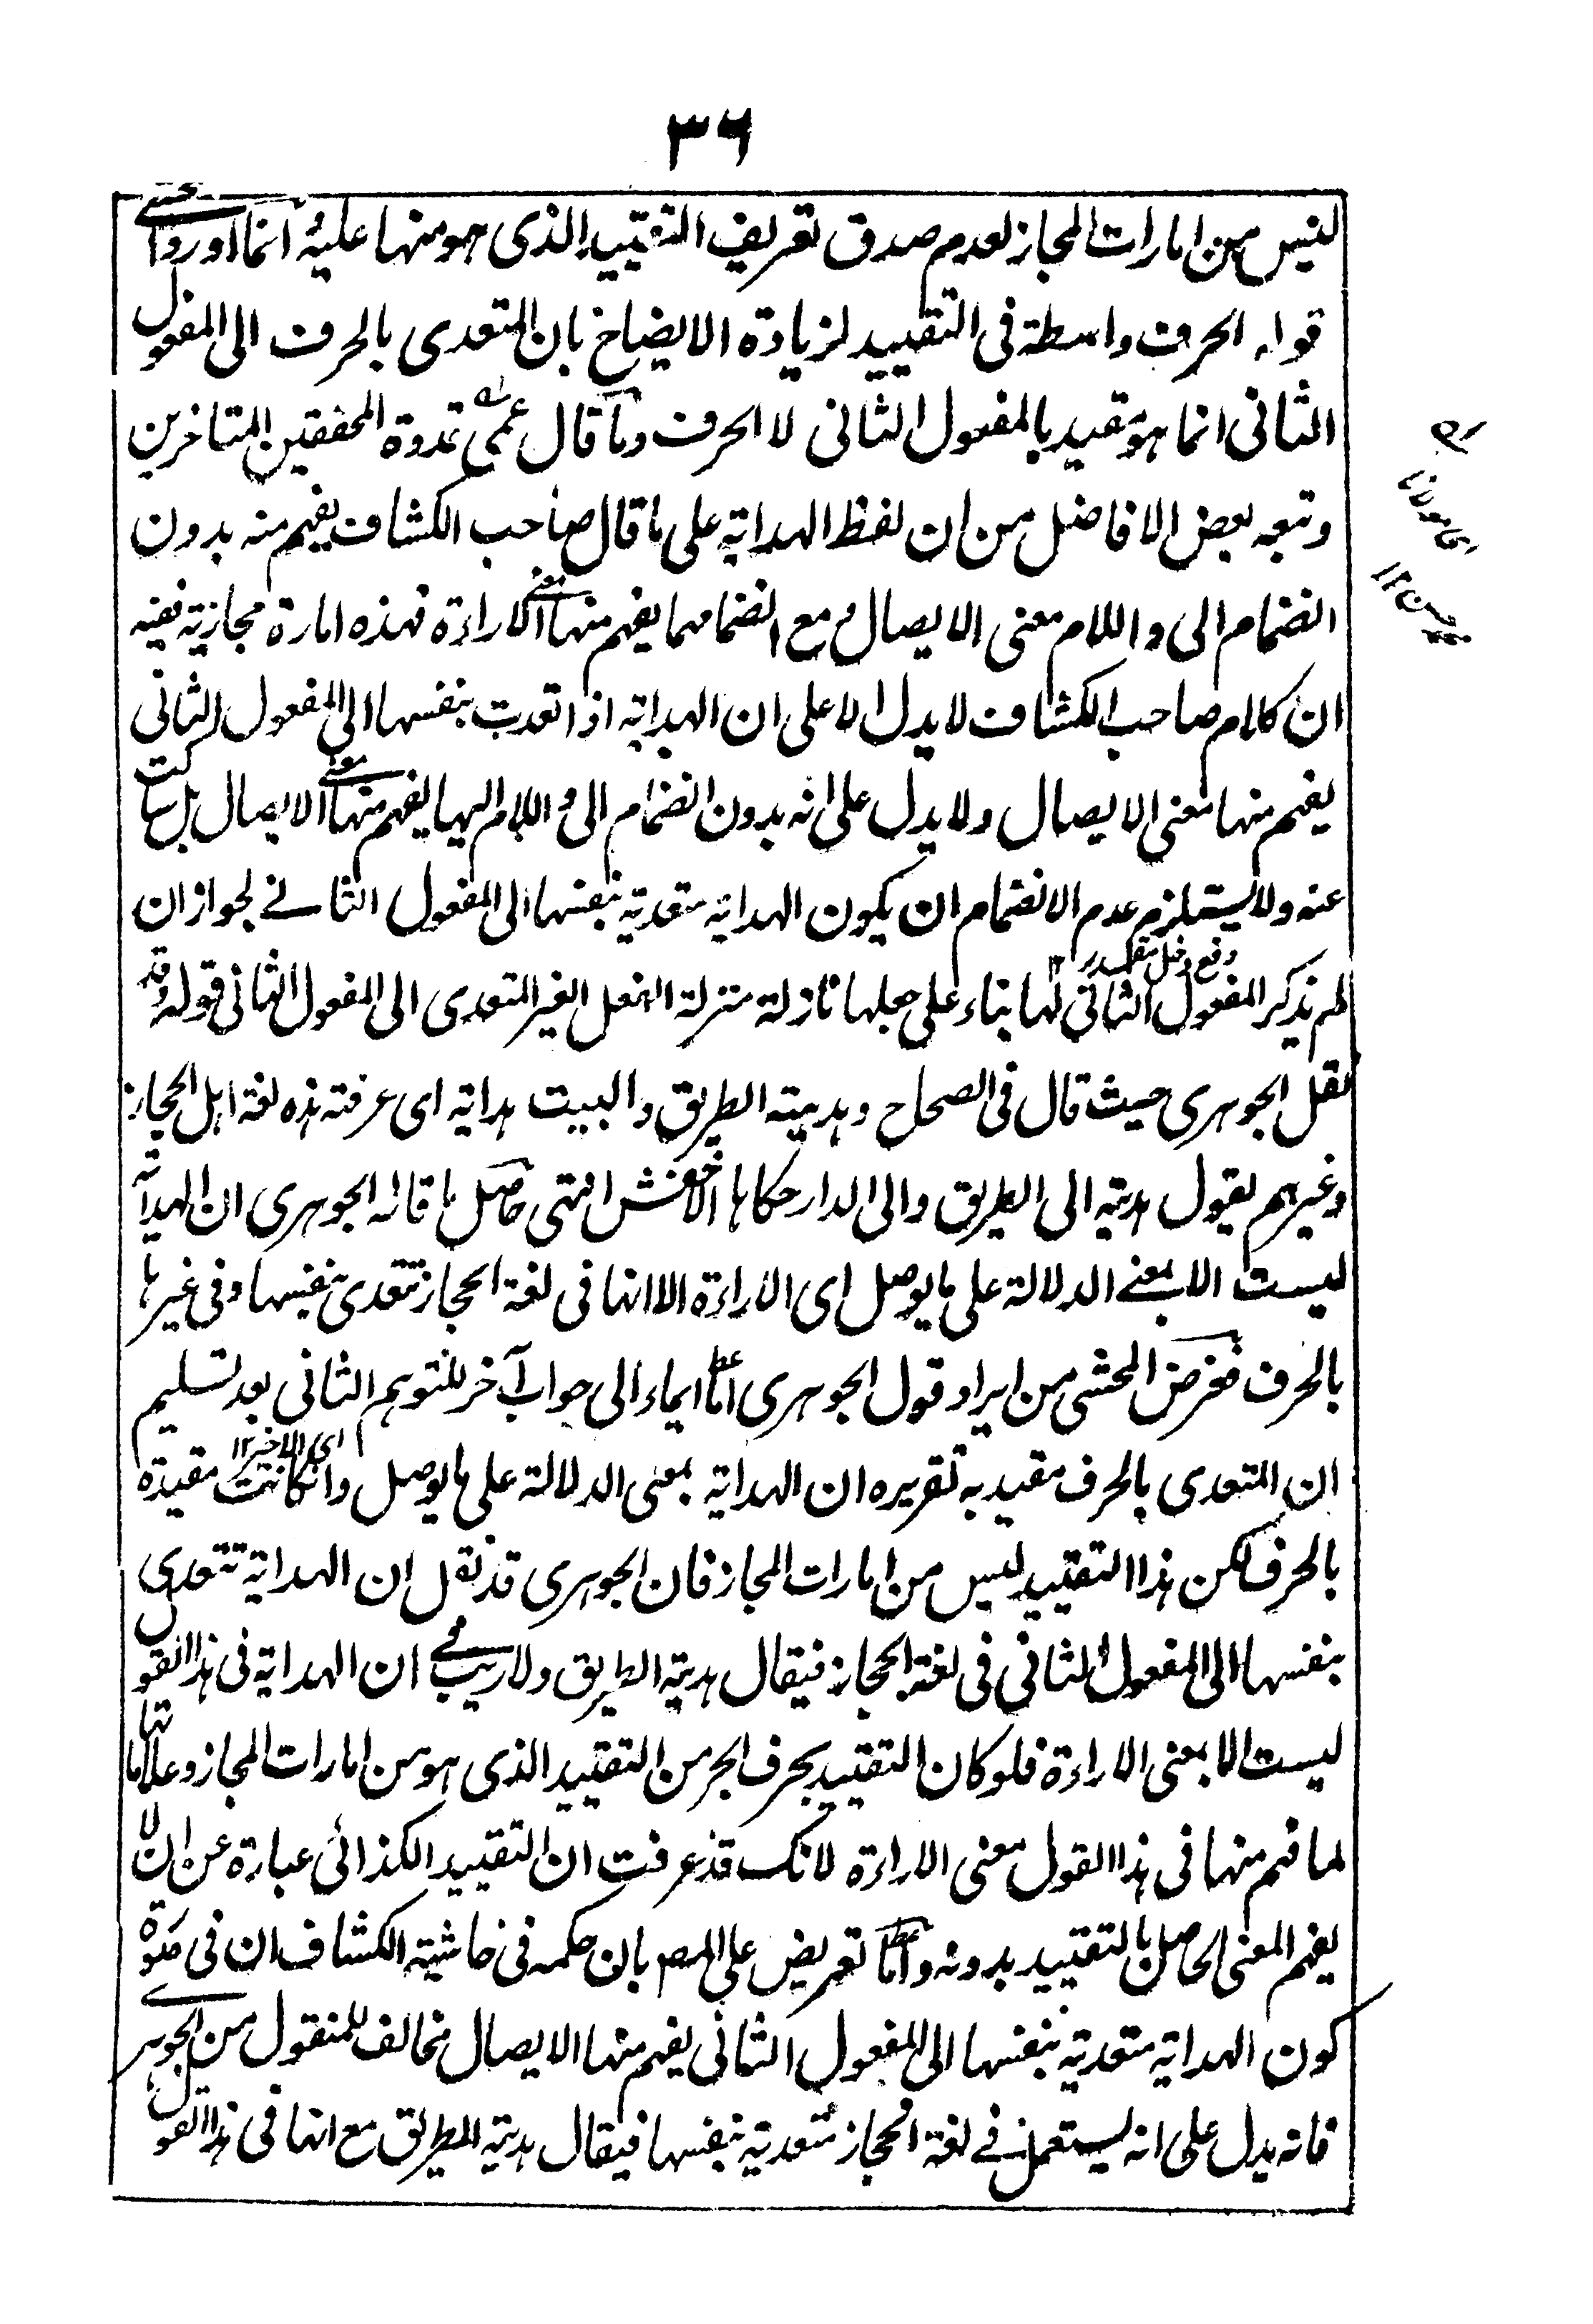 ٣٦
ليس من امارات المجاز لعدم صدق تعريف التقييد الذى هو منها عليه انما اورد المحشى
قوله الحرف واسطة فى التقييد لزيادة الايضاح بان المتعدى بالحرف الى المفعول
الثانى انما هو مقيد بالمفعول الثانى لا الحرف وما قال عمى قدوة المحققين المتاخرين
وتبعه بعض الافاضل من ان لفظ الهداية على ما قال صاحب الكشاف يفهم منه بدون
انضمام الى واللام معنى الايصال ومع انضمامهما يفهم منها معنى الاراءة فهذه امارة مجازية ففيه
ان كلام صاحب الكشاف لا يدل الا على ان الهداية اذا تعدت بنفسها الى المفعول الثانى
يفهم منها معنى الايصال ولا يدل على انه بدون انضمام الى واللام اليها يفهم منها معنى الايصال بل ساكت
عنه ولا يستلزم عدم الانضمام ان يكون الهداية متعدية بنفسها الى المفعول الثانى لجواز ان
دفع دخل مقدر ١٢
لم يذكر المفعول الثانى لها بناء على جعلها نازلة منزلة الفعل الغير المتعدى الى المفعول الثانى قوله وقد
نقل الجوهرى حيث قال فى الصحاح وهديته الطريق والبيت هداية اى عرفته هذه لغة اهل الحجاز
وغيرهم يقول هديته الى الطريق والى الدار حكاها الاخفش انتهى حاصل ما قاله الجوهرى ان الهداية
ليست الا بمعنى الدلالة على ما يوصل اى الاراءة الا انها فى لغة الحجاز تتعدى بنفسها وفى غيرها
بالحرف فغرض المحشى من ايراد قول الجوهرى اما ايماء الى جواب آخر للتوهم الثانى بعد تسليم
اى الاخر ١٢
ان المتعدى بالحرف مقيد به تقريره ان الهداية بمعنى الدلالة على ما يوصل وان كانت مقيدة
بالحرف لكن هذا التقييد ليس من امارات المجاز فان الجوهرى قد نقل ان الهداية تتعدى
بنفسها الى المفعول الثانى فى لغة الحجاز فيقال هديته الطريق ولا ريب فى ان الهداية فى هذا القول
ليست الا بمعنى الاراءة فلو كان التقييد بحرف الجر من التقييد الذى هو من امارات المجاز وعلاماتها
لما فهم منها فى هذا القول معنى الاراءة لانك قد عرفت ان التقييد الكذائى عبارة عن ان لا
يفهم المعنى الحاصل بالتقييد بدونه واما تعريض على المصـ بان حكمه فى حاشية الكشاف ان فى صورة
كون الهداية متعدية بنفسها الى المفعول الثانى يفهم منها الايصال مخالف للمنقول من الجوهرى
فانه يدل على انه يستعمل فى لغة الحجاز متعدية بنفسها فيقال هديته الطريق مع انها فى هذا القول